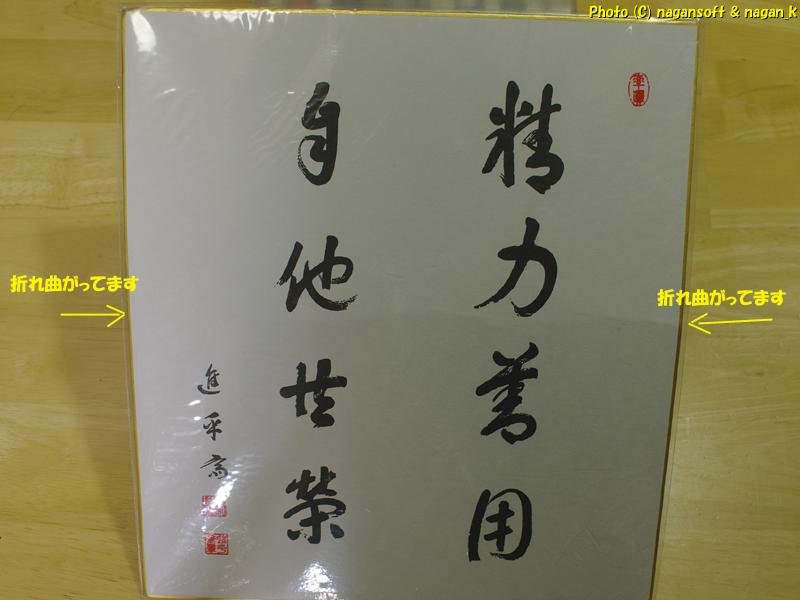 Photo (C) nagansoft & nagan_k
精力善用
自他共榮
進乎斎
折れ曲がってます
折れ曲がってます